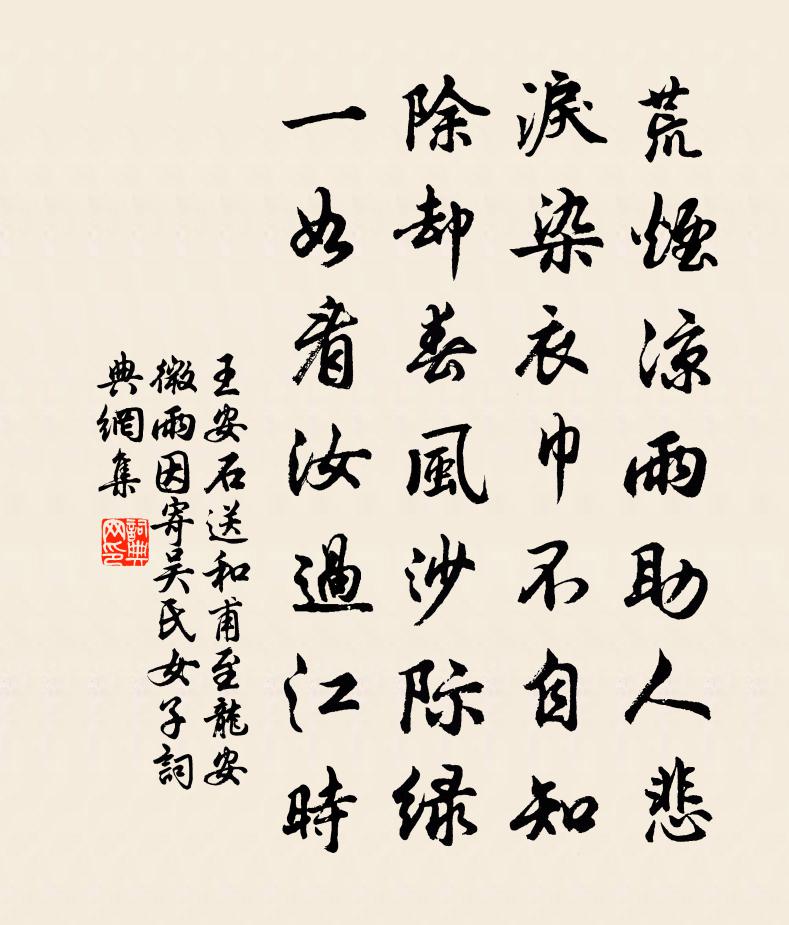 荒煙涼雨助人悲
淚染衣巾不自知
除却春風沙际绿
一如看汝過江時
王安石送和甫至龍安
微雨因寄吴氏女子詞
典網集
詞典
网印